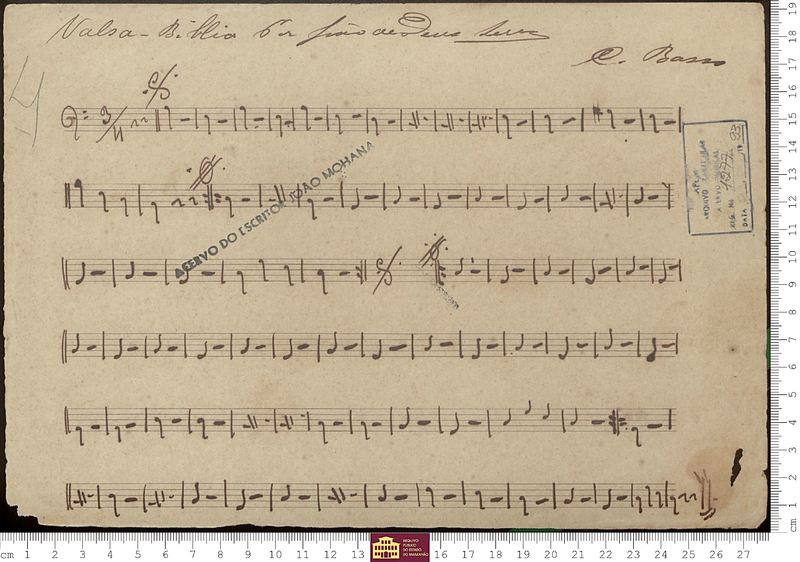 Valsa - Biblia Por João de Deus Serra
C. Basso
3/4
ACERVO DO ESCRITOR JOÃO MOHANA
APEM
ACERVO MUSICAL
REG. No 1277
DATA
19 93
cm 1 2 3 4 5 6 7 8 9 10 11 12 13 16 17 18 19 20 21 22 23 24 25 26 27
ARQUIVO
PÚBLICO
DO ESTADO
DO MARANHÃO
cm 1 2 3 4 5 6 7 8 9 10 11 12 13 14 15 16 17 18 19